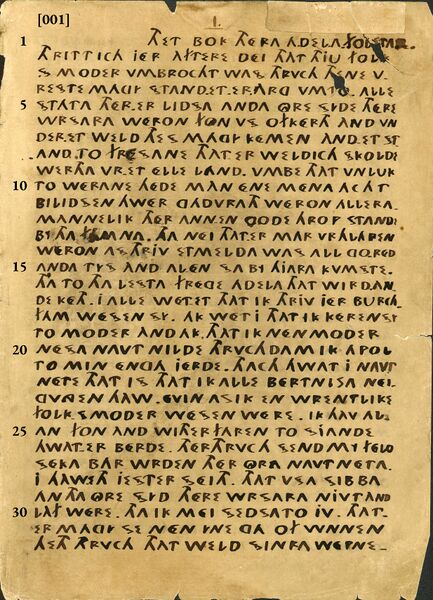 [001]
I.
1 THET BOK THERA ADELA FOLSTAR.
THRITTICH JER AFTERE DEI THAT THJU FOLK
S MODER VMBROCHT WAS THRUCH THENE V
RESTE MAGY STAND.ET.ER ARG VMTO. ALLE
5 STATA THER.ER LIDSA ANDA ORE SIDE THERE
WRSARA WERON FON VS OFKERTH AND VN
DER.ET WELD THES MAGY KEMEN AND.ET ST
AND.TO FRESANE THAT ER WELDICH SKOLDE
WERTHA VR.ET ELLE LAND. VMBE THAT VNLUK
10 TO WERANE HEDE MAN ENE MENA ACHT
BILIDSEN HWER GADURATH WERON ALLERA.
MANNELIK THER ANNEN GODE HROP STANDE
BY THA FAMANA. THA NEI THAT.ER MAR VRHLAPEN
WERON AS THRIV ETMELDA WAS ALL GO.RED
15 ANDA TYS AND ALEN SA BY HIARA KVMSTE.
THA TO THA LESTA FREGE ADELA THAT WIRD.AN
DE KETH. I ALLE WET.ET THAT IK THRIV IER BURCH.
FAM WESEN SI. AK WET I THAT IK KEREN SI
TO MODER AND AK. THAT IK NEN MODER
20 NESA NAVT NILDE THRUCHDAM IK APOL
TO MIN ENGA IERDE. THACH HWAT I NAVT
NETE THAT IS THAT IK ALLE BERTNISA NEI.
GVNGEN HAW. EVIN AS IK EN WRENTLIKE
FOLK.SMODER WESEN WERE. IK HAV AL.
25 AN FON AND WITHERFAREN TO SIANDE
HWAT.ER BERDE. THERTHRUCH SEND MY FELO
SEKA BAR WRDEN THER ORA NAVT NETA.
I HAWETH IESTER SEITH. THAT VSA SIBBA
AN THA ORE SYD THERE WRSARA NIVT AND
30 LAF WERE. THA IK MEI SEDSA TO IV. THAT.
ER MAGY SE NEN YNE GA OF WNNEN
HETH THRUCH THAT WELD SINRA WEPNE.